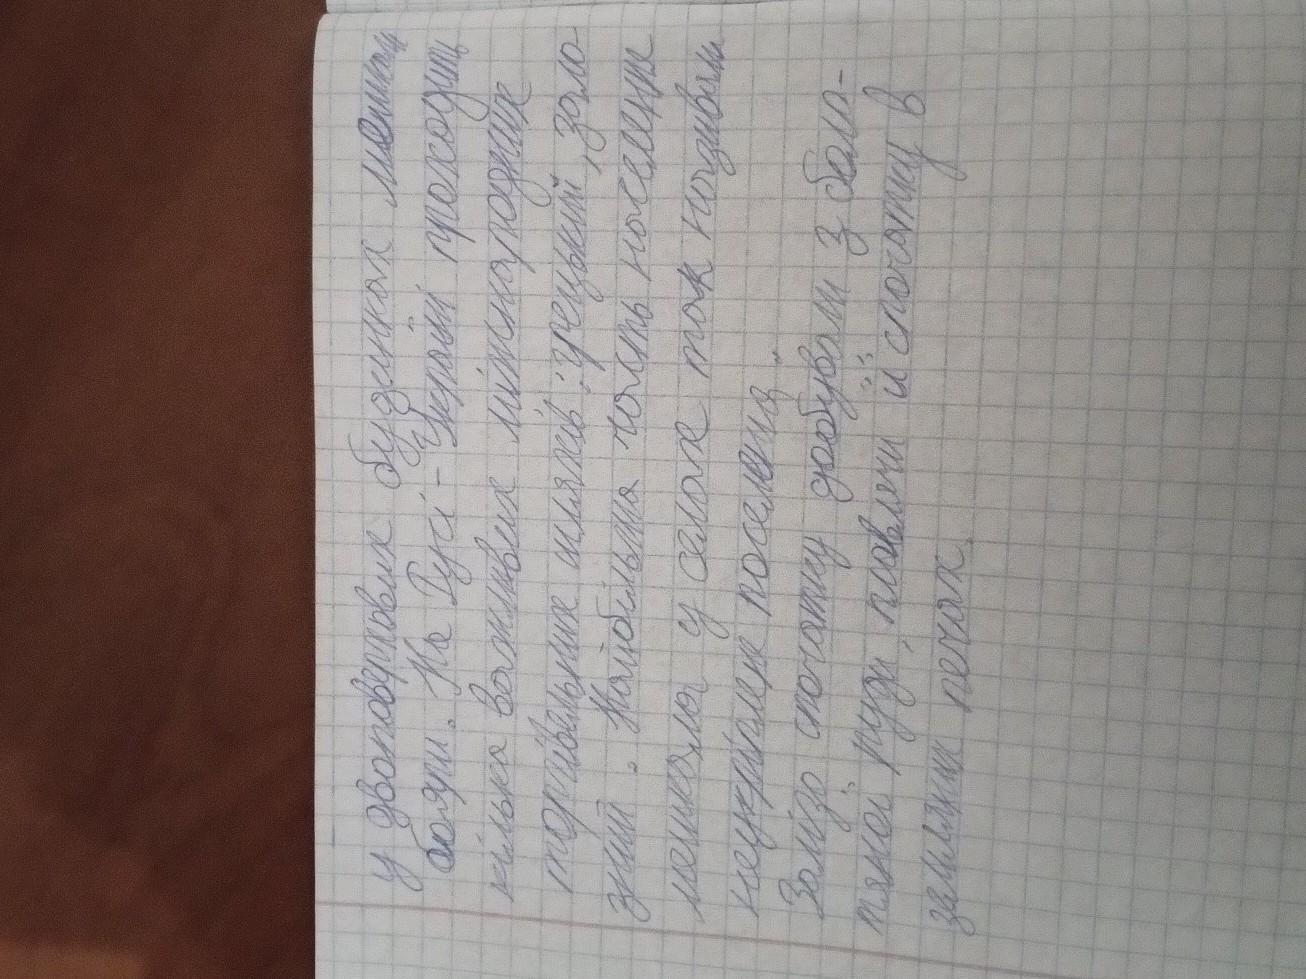 у двоповерхових будинках мешкали
бояри. На Русі - Україні проходить
кілька важливих міжнародних
торгівельних шляхів: грецький, зало-
зний. Найбільша часть населення
мешкала у селах так називали
неукріплені поселення.
Залізо спочатку добували з боло-
тяної руди, плавлячи її спочатку в
земляних печах.